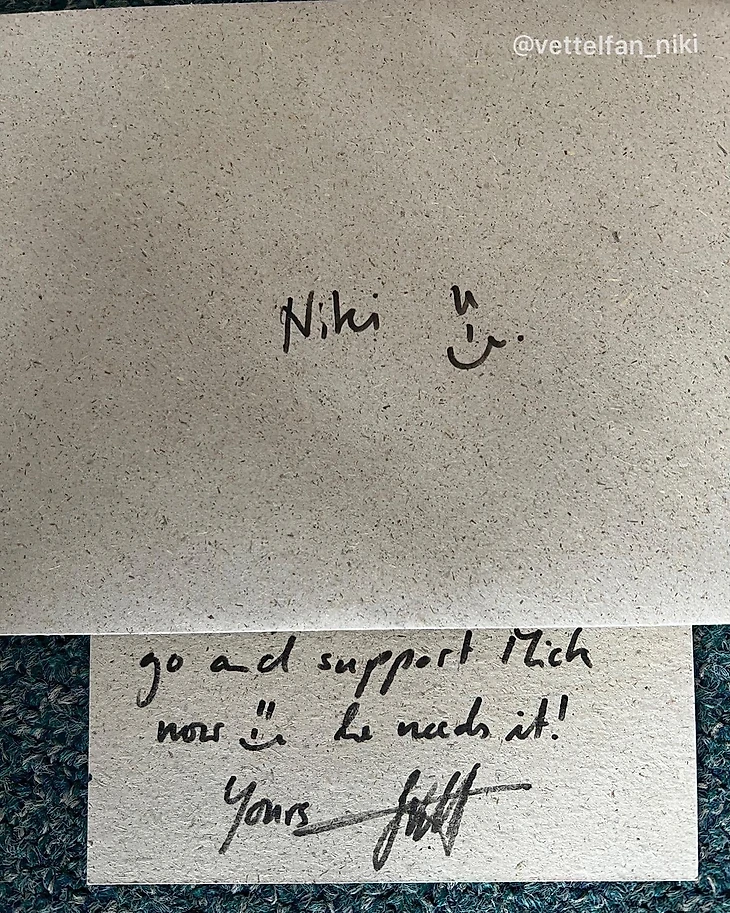 @vettelfan_niki
Niki
go and support Mich
now he needs it!
Yours